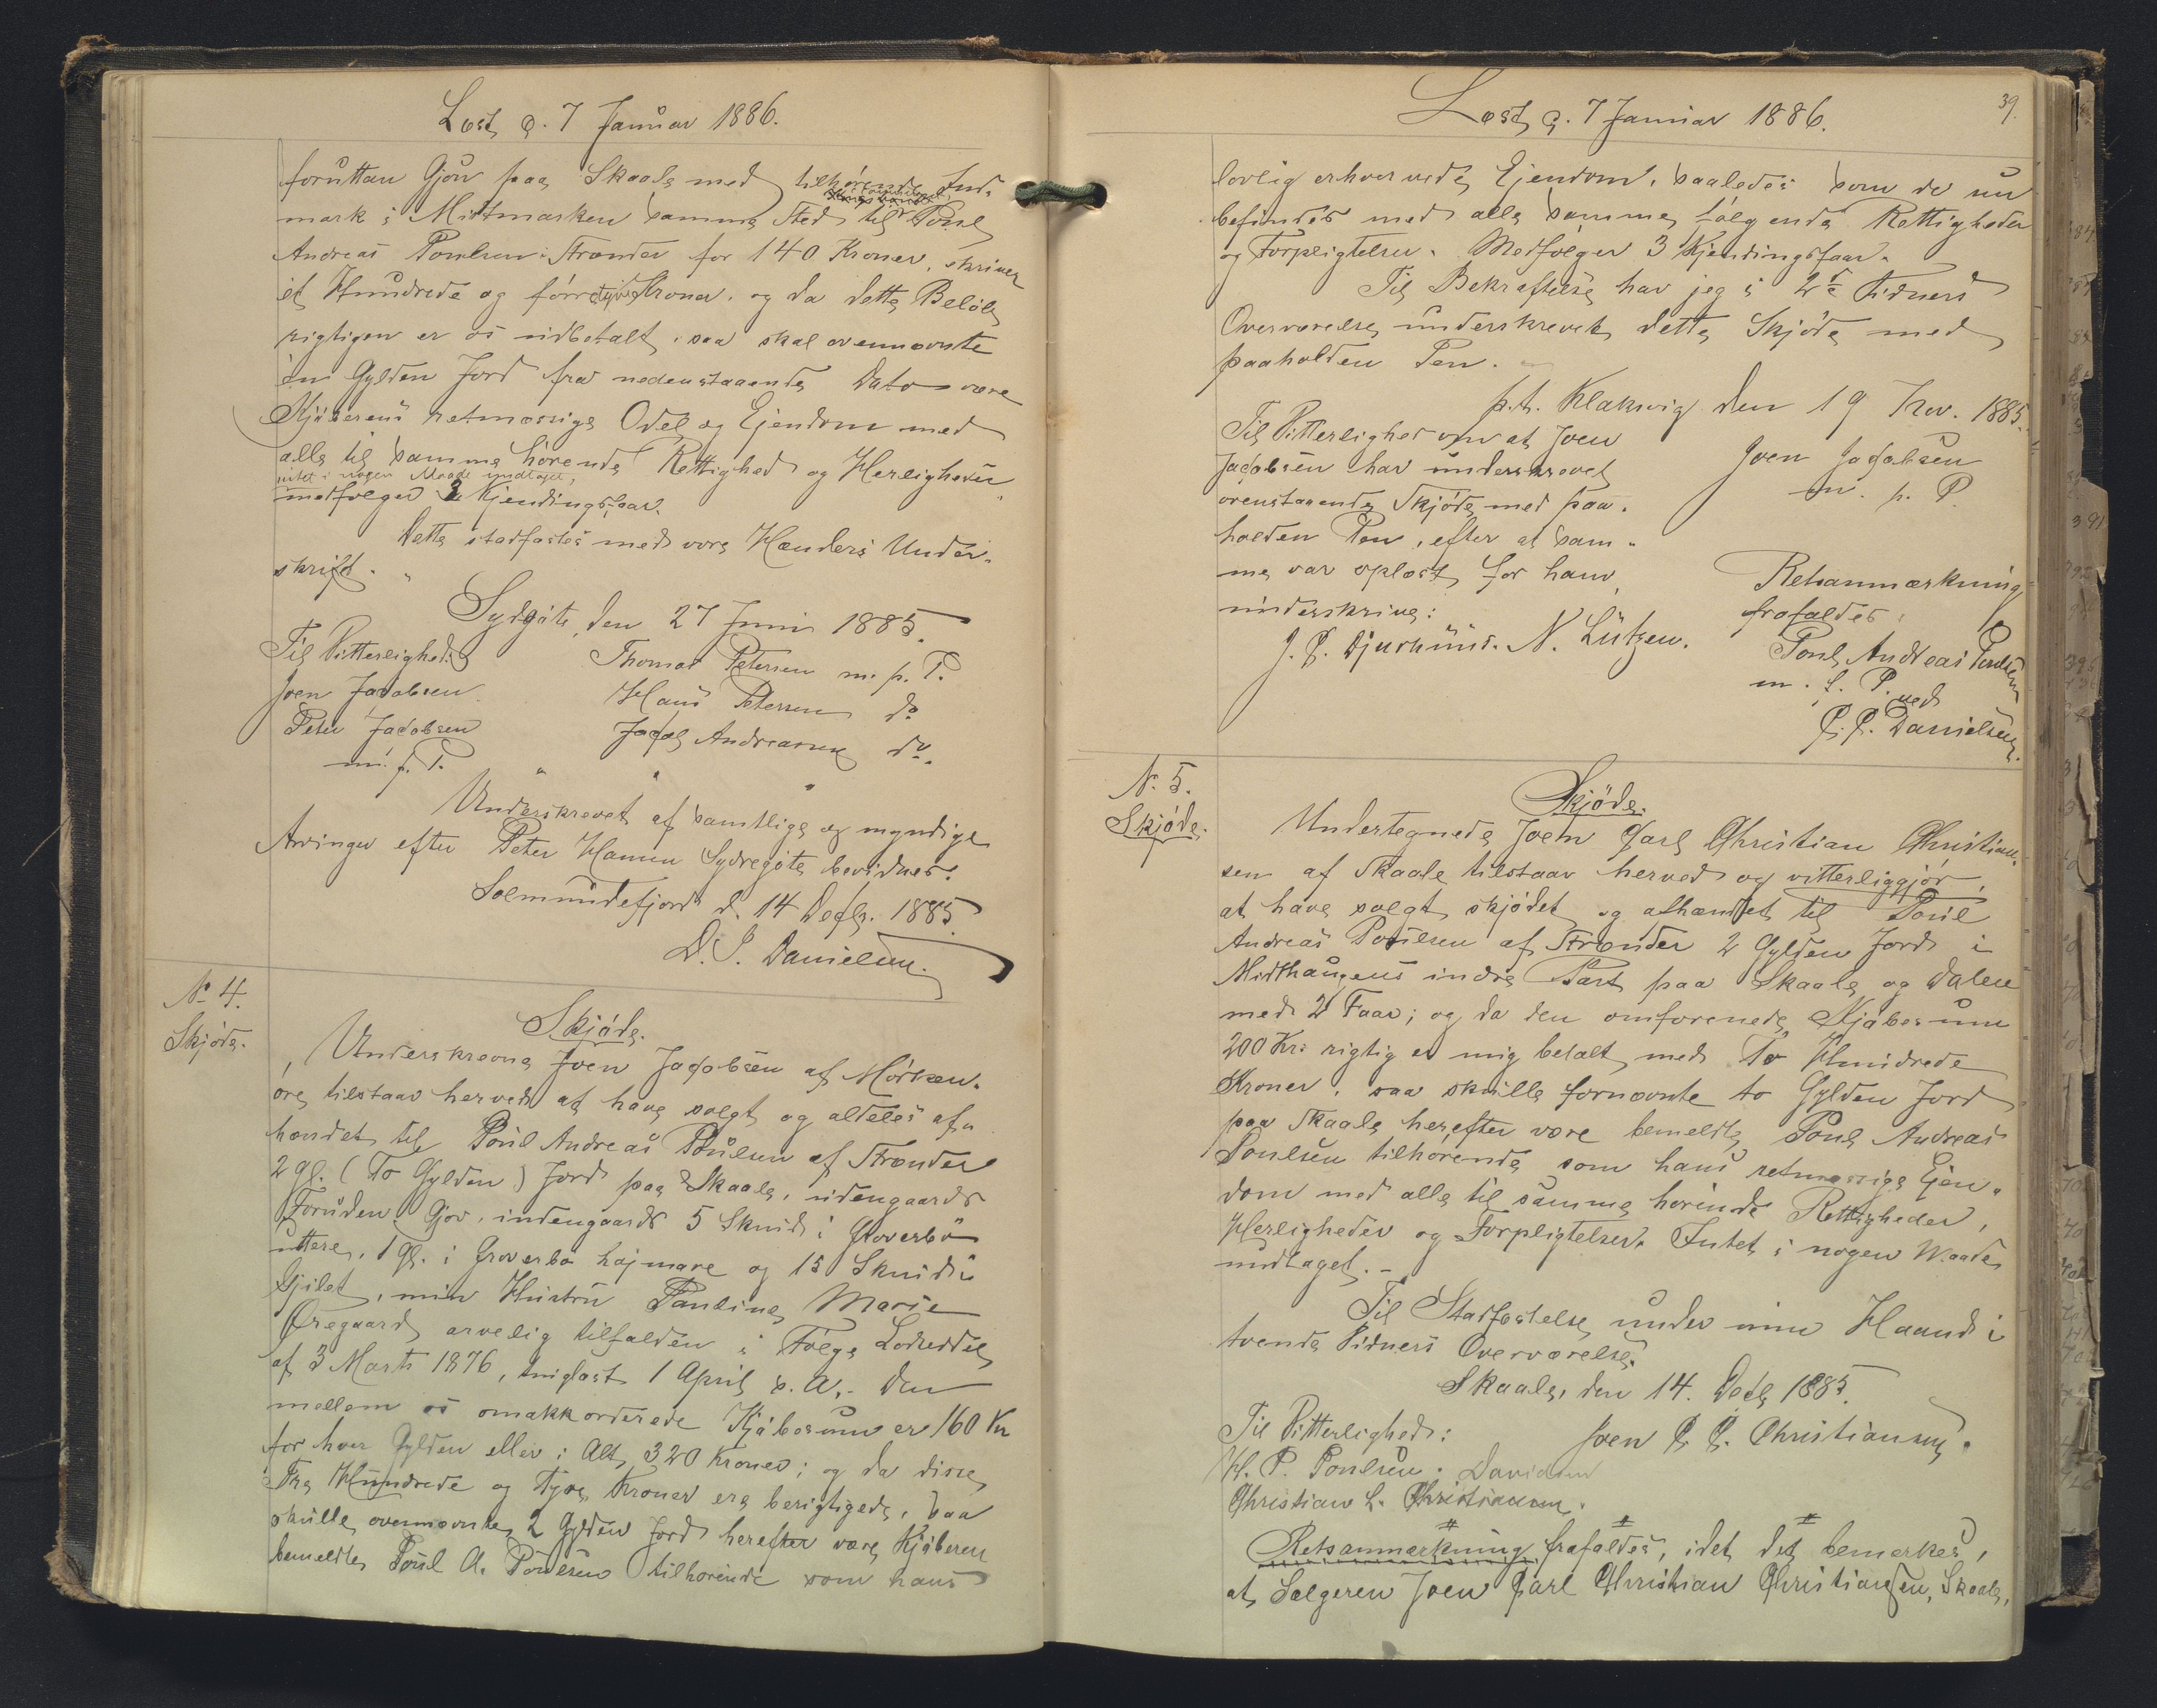 Læst d. 7 Januar 1886.
foruttan Gjov paa Skaale med tilhørende Ind-
mark i Mittmarken samme Sted til Poul
Andreas Poulsen Strænder for 140 Kroner, skriver
et Hundrede og førretyve Kroner. og da dette Beløb
rigtigen er os udbetalt, saa skal ovennævnte
en Gylden Jord fra nedenstaaende Dato være
Kjøberens retmæssige Odel og Ejendom med
alle til samme hørende Rettighed og Herligheder
intet i nogen Maade undtaget,
medfølger 2 Kjendingsfaar.
Dette stadfæstes med vore Hænders Under-
skrift.
Sydgøte, den 27 Juni 1885.
Til Vitterlighed
Thomas Petersen m. p. P.
Joen Jacobsen
Hans Petersen do
Peter Jacobsen
Jacob Andreasen do.
m. p. P.
Underskrevet af samtlige og myndige
Arvinger efter Peter Hansen Sydregøte bevidnes.
Solmundefjord d. 14 Decbr. 1885
D. J. Danielsen.
No 4.
Skjøde.
Skjøde.
Underskrevne Joen Jacobsen af Morsken-
øre tilstaar herved at have solgt og aldeles af-
hændet til Poul Andreas Poulsen af Strænder
2 gl. (To Gylden) Jord paa Skaale, udengaards
Foruden Gjov, indengaards 5 Skind i Groverbø
uttere, 1 gl. i Groverbø hajmare og 15 Skind i
Gjilet, min Hustru Pauline Marie
Øregaard arvelig tilfalden i Følge Lodseddel
af 3 Marts 1876, thinglæst 1 April s. A. - Den
mellem os omakkorderede Kjøbesum er 160 Kr
for hver Gylden eller i Alt 320 Kroner; og da disse
Tre Hundrede og Tyve Kroner ere berigtigede, saa
skulle ovennævnte 2 Gylden Jord herefter være Kjøberen
bemeldte Poul A. Poulsen tilhørende som hans
39.
Læst d. 7 Januar 1886.
lovlig erhvervede Ejendom, saaledes som de nu
befindes med alle samme følgende Rettigheder
og Forpligtelser. Medfølger 3 Kjendingsfaar.
Til Bekræftelse har jeg i 2de Vidners
Overværelse underskrevet dette Skjøde med
paaholden Pen.
p.t. Klaksvig den 19 Nov. 1885.
Til Vitterlighed om at Joen
Jacobsen har underskrevet
ovenstaaende Skjøde med paa-
holden Pen, efter at sam-
me var oplæst for ham,
underskrive:
J. P. Djurhuus. N. Lützen.
Joen Jacobsen
m. p. P.
Retsanmærkning
frafaldes.
Poul Andreas Poulsen
m. f. P. ved
P. P. Danielsen.
N. 5.
Skjøde.
Skjøde.
Undertegnede Joen Carl Christian Christian-
sen af Skaale tilstaar herved og vitterliggjør,
at have solgt, skjødet og afhændet til Poul
Andreas Poulsen af Strænder 2 Gylden Jord i
Midthaugens indre Part paa Skaale og Dalen
med 2 Faar; og da den omforenede Kjøbesum
200 Kr. rigtig er mig betalt med To Hundrede
Kroner, saa skulle fornævnte to Gylden Jord
paa Skaale herefter være bemeldte Poul Andreas
Poulsen tilhørende som hans retmæssige Ejen-
dom med alle til samme hørende Rettigheder,
Herligheder og Forpligtelser. Intet i nogen Maade
undtaget. -
Til Stadfæstelse under min Haand i
tvende Vidners Overværelse.
Skaale, den 14. Decb 1885.
Til Vitterlighed:
Joen C. C. Christiansen.
H. P. Poulsen. Davidsen
Christian L. Christiansen.
Retsanmærkning frafaldes, idet det bemærkes,
at Sælgeren Joen Carl Christian Christiansen, Skaale,